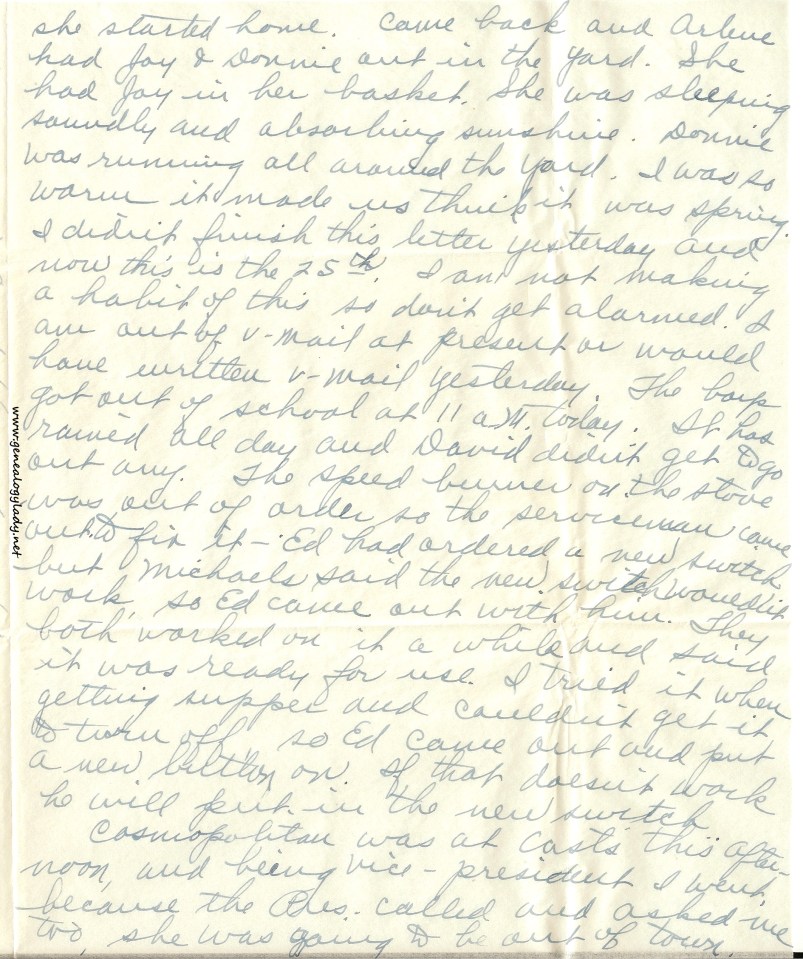 she started home. Came back and Arlene
had Joy & Donnie out in the yard. She
had Joy in her basket. She was sleeping
soundly and absorbing sunshine. Donnie
was running all around the yard. I was so
warm it made us think it was spring.
I didn't finish this letter yesterday and
now this is the 25th. I am not making
a habit of this so don't get alarmed. I
am out of v-mail at present or would
have written v-mail yesterday. The boys
got out of school at 11 a.m. today. It has
rained all day and David didn't get to go
out any. The speed burner on the stove
was out of order so the serviceman came
out to fix it - Ed had ordered a new switch
but Michaels said the new switch wouldn't
work, so Ed came out with him. They
both worked on it a while and said
it was ready for use. I tried it when
getting supper and couldn't get it
to turn off, so Ed came out and put
a new button on. If that doesn't work
he will put in the new switch.
Cosmopolitan was at Casts this after-
noon, and being vice-president I went,
because the Pres. called and asked me
to, she was going to be out of town.
www.genealogylady.net